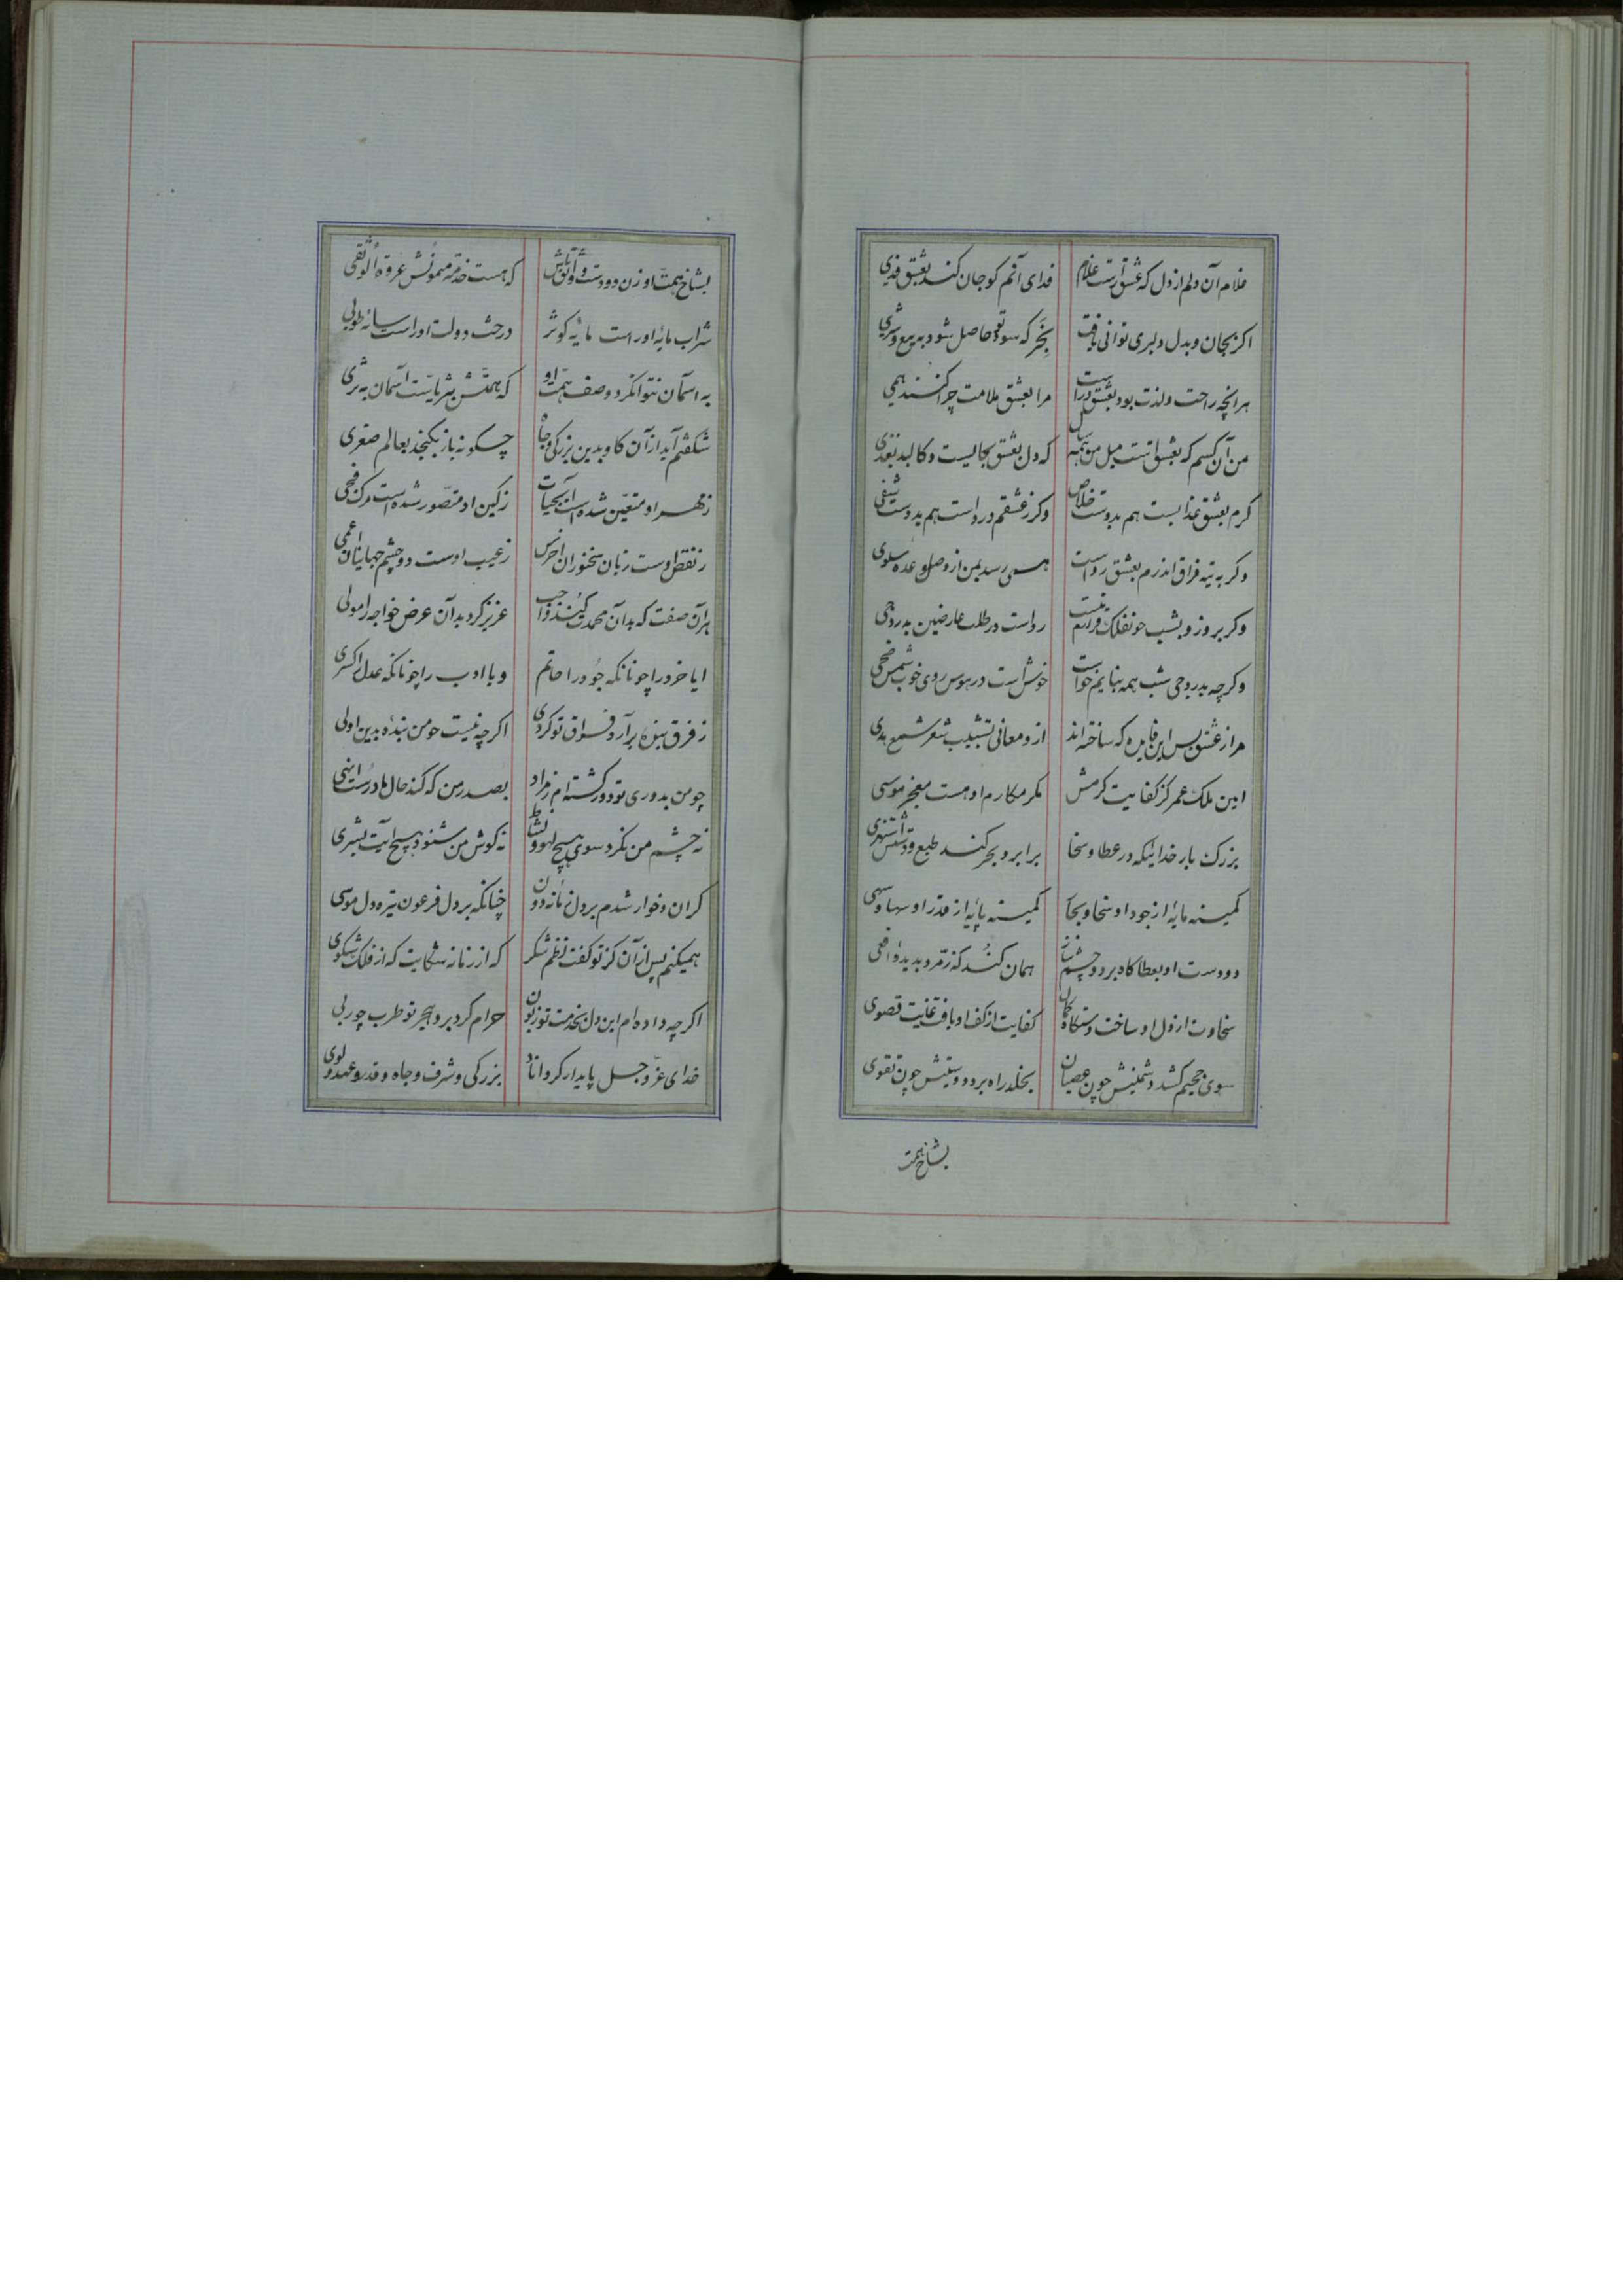 غلام آن دلم از دل که عشق راست غلام فدای آنم کو جان کند بعشق فدی
اکر بجان و بدل دلبری توانی یافت بخر که سود تو حاصل شود به بیع و شری
هر آنچه راحت و لذت بود بعشق دراست مرا بعشق ملامت چرا کنند همی
من آن کسم که بعشق است میل من همه سال که دل بعشق بجالیست و کالبد بغدی
کرم بعشق عذابست هم بدوست خلاص وکر ز عشقم درد است هم بدوست شفی
وکر به تیه فراق اندرم بعشق رواست همی رسد بمن از وصل وعده سلوی
وکر بروز و بشب چو نفلک قرارم نیست رواست در طلب عارضین بدر دجی
وکر چه بدر دجی شب همه بنایم خواست خوش است در هوس روی خوب شمس ضحی
مرا ز عشق بس این فایده که ساخته اند از و معانی تشبیب شعر شمع هدی
امین ملک عمر کز کفایت کرمش مکر مکارم او هست معجز موسی
بزرک بار خدائیکه در عطا و سخا برابر و بحر کند طبع و دستش استهزی
کمینه مایهٔ از جود او سخا و بحا کمینه پایهٔ از قدر او سها و سهی
دو دست او بعطا کاه برد و چشم نیاز همان کند که زمرد بدیدهٔ افعی
سخاوت از دل او ساخت دستکاه کمال کفایت از کف او یافت غایت قصوی
سوی جحیم کشد دشمنیش چون عصیان بخلد راه برد دوستیش چون تقوی
بشاخ همت
بشاخ همت او زن دو دست و که هست خدمت میمونش عروة الوثقی
شراب مایهٔ او راست مایهٔ کوثر درخت دولت او راست سایهٔ طوبی
به اسمان نتوانکرد وصف همت او که همتش بثریاست آسمان به ثری
شکفتم آید از آن کاو بدین بزرکی و جاه چکونه باز بکنجد بعالم صغری
ز مهر او متعین شده است آبحیات ز کین او متصور شده است مرک فجی
ز نقص اوست زبان سخنوران اخرس ز عیب اوست دو چشم جهانیان اعمی
هر آن صفت که بدان محمدت کنند واجب عزیز کرد بدان عرض خواجه را مولی
ایا خرد را چونانکه جود را حاتم و یا ادب را چونانکه عدل را کسری
ز فرق بنده بر آرد فراق تو کردی اکر چه نیست چو من بنده بدین اولی
چو من بدوری تو دور کشته ام ز مراد بصدر من که کند حال ها درست اینهی
نه چشم من نکرد سوی هیچ لهو و نشاط نه کوش من شنود هیچ آیت بشری
کران و خوار شدم بر دل زمانهٔ دون چنانکه بر دل فرعون تیره دل موسی
همیکنم پس از آن کز تو کفت نظم شکر که از زمانه شکایت که از فلک شکوی
اکر چه داده ام این دل بخدمت تو زبون حرام کرد برو هجر تو طرب چو ربی
خدای عز و جل پایدار کرداناد بزرکی و شرف و جاه و قدر و عهد و لوی